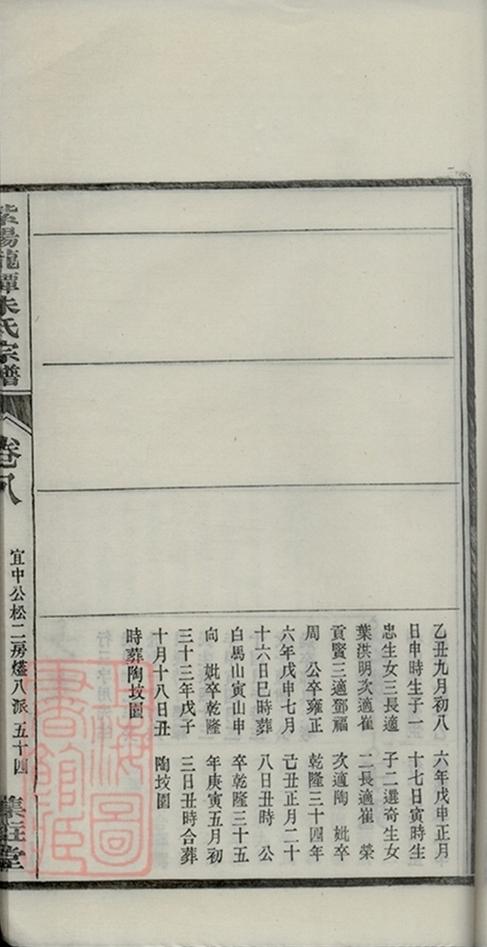 乙丑九月初八
日申時生子一
忠生女三長適
葉洪明次適崔
貢賢三適鄧福
周　公卒雍正
六年戊申七月
十六日巳時葬
白馬山寅山申
向　妣卒乾隆
三十三年戊子
十月十八日丑
時葬陶坟園
六年戊申正月
十七日寅時生
子二選奇生女
二長適崔　榮
次適陶　妣卒
乾隆三十四年
己丑正月二十
八日丑時　公
卒乾隆三十五
年庚寅五月初
三日丑時合葬
陶坟園
紫陽龍潭朱氏宗譜
卷八
宜中公松二房爔八派　五十四
集
堂
上海圖
書館